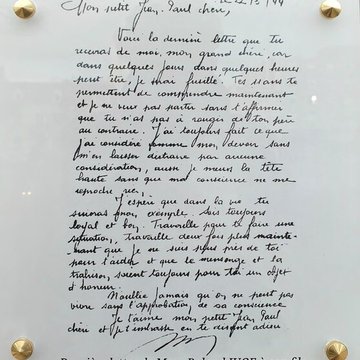 Mon petit Jean-Paul chéri,
Voici la dernière lettre que tu
recevras de moi, mon grand chéri, car
dans quelques jours dans quelques heures
peut être, je serai fusillé. Tes 11 ans te
permettent de comprendre maintenant
et je ne veux pas partir sans t'affirmer
que tu n'as pas à rougir de ton père
au contraire. J'ai toujours fait ce que
j'ai considéré comme mon devoir sans
m'en laisser distraire par aucune
considération, aussi je meurs la tête
haute sans que ma conscience ne me
reproche rien.
J'espère que dans la vie tu
suivras mon exemple. Sois toujours
loyal et bon. Travaille pour te faire une
situation, travaille deux fois plus mainte-
nant que je ne suis plus près de toi
pour t'aider et que le mensonge et la
trahison, soient toujours pour toi un objet
d'horreur.
N'oublie jamais qu'on ne peut pas
vivre sans l'approbation de sa conscience
Je t'aime mon petit Jean Paul
chéri et je t'embrasse en te disant adieu